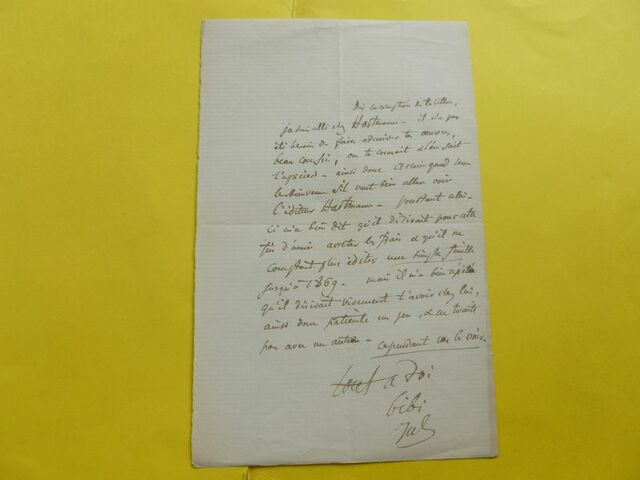 Dès la réception de ta lettre,
je suis allé chez Hartmann - il n'a pas
été besoin de faire ta œuvres,
beau cousin, on te connait & l'on sait
t'apprécier - ainsi donc Armingaud sera
le bienvenu s'il veut bien aller voir
l'éditeur Hartmann - pourtant celui-
ci m'a bien dit qu'il désirait pour cette
fin d'année arrêter les frais & qu'il ne
comptait plus éditer une simple feuille
jusqu'à 1869. - mais il m'a bien ajouté
qu'il désirait vivement t'avoir chez lui,
ainsi donc patiente un peu, & ne traite
pas avec un autre - cependant vas le voir.
tout a toi
bibi
Jul